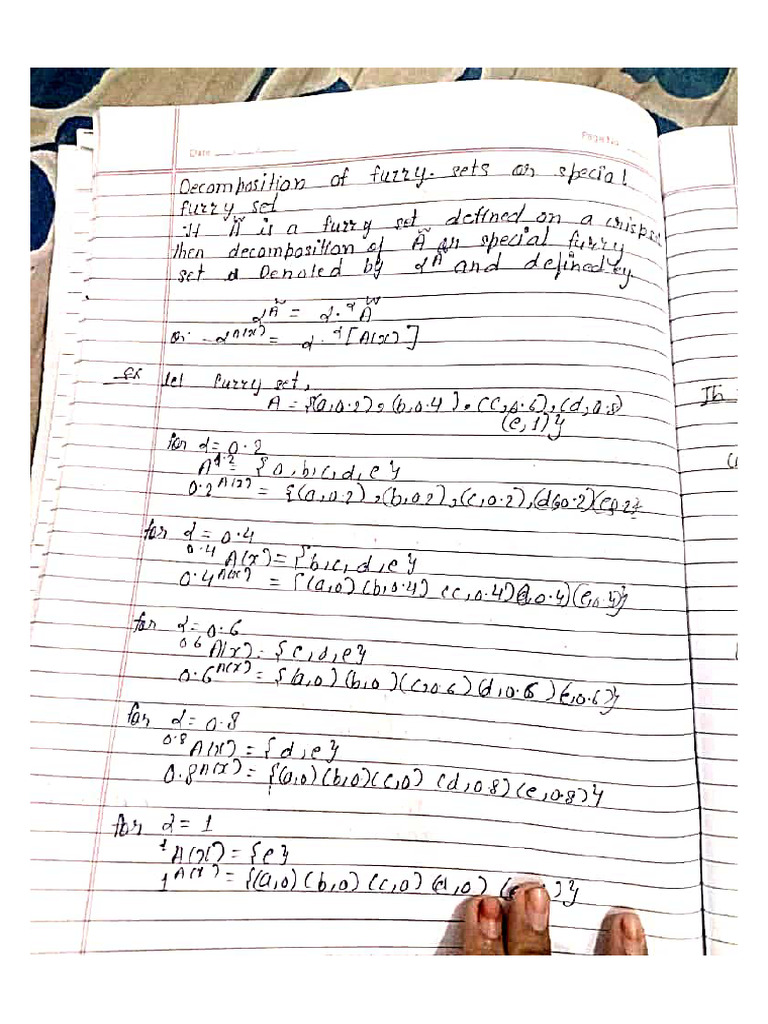 Date
Page No.
Decomposition of fuzzy sets or special
fuzzy set
If Ã is a fuzzy set defined on a crisp set
then decomposition of Ã or special fuzzy
set Denoted by αᴬ and defined by.
αÃ = α.ᵅÃ
or αA(x) = α.ᵅ[A(x)]
Ex let fuzzy set,
A = {(a,0.2), (b,0.4), (c,0.6), (d,0.8)
(e,1)}
for α=0.2
A^0.2 = {a,b,c,d,e}
0.2A(x) = {(a,0.2),(b,0.2),(c,0.2),(d,0.2)(e,0.2)}
for α=0.4
0.4 A(x) = {b,c,d,e}
0.4A(x) = {(a,0)(b,0.4)(c,0.4)(d,0.4)(e,0.4)}
for α=0.6
0.6 A(x) = {c,d,e}
0.6A(x) = {(a,0)(b,0)(c,0.6)(d,0.6)(e,0.6)}
for α=0.8
0.8 A(x) = {d,e}
0.8A(x) = {(a,0)(b,0)(c,0)(d,0.8)(e,0.8)}
for α=1
1A(x) = {e}
1A(x) = {(a,0)(b,0)(c,0)(d,0)
Ih